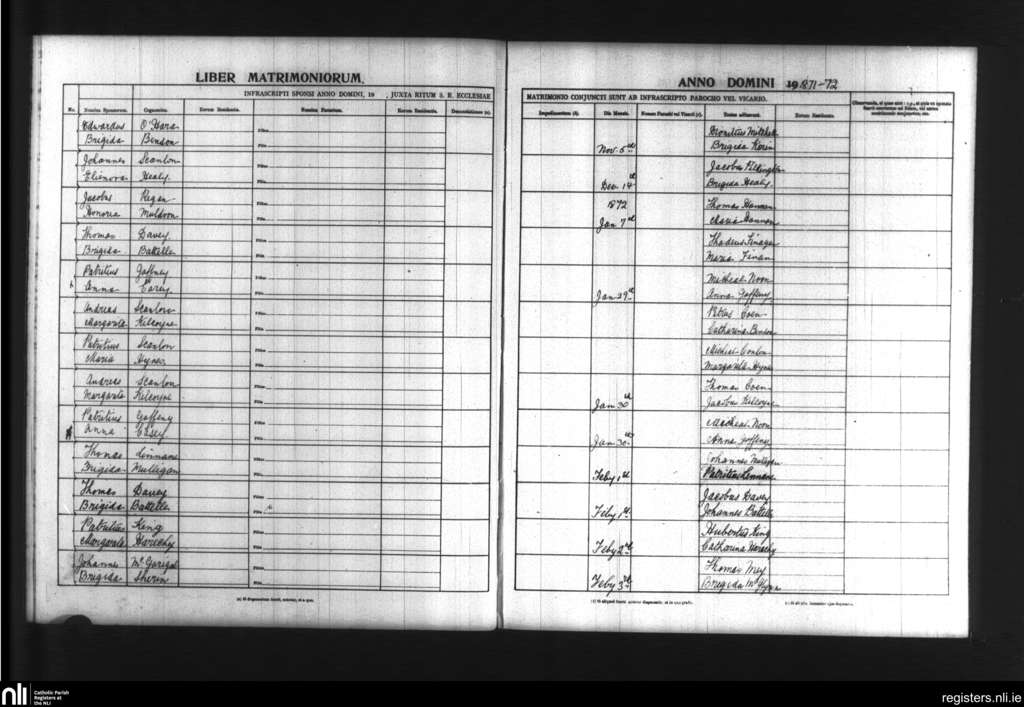 LIBER MATRIMONIORUM.
ANNO DOMINI 19 1871-72
INFRASCRIPTI SPONSI ANNO DOMINI, 19 , JUXTA RITUM S. R. ECCLESIAE
MATRIMONIO CONJUNCTI SUNT AB INFRASCRIPTO PAROCHO VEL VICARIO.
No. Nomina Sponsorum. Cognomina. Eorum Residentia. Nomina Parentum. Eorum Residentia. Denunciationes (a). Impedimentum (b). Die Mensis. Nomen Parochi vel Vicarii (c). Testes adfuerunt. Eorum Residentia.
Edwardus O'Hara Filius Dionitius Mitchell
Brigida Benson Filia Nov. 5th Brigida Kerin
Johannes Scanlon Filius Jacobus Pilkington
Elienora Healy Filia Dec 14th Brigida Healy
Jacobus Regan Filius 1872 Thomas Hannon
Honoria Muldoon Filia Jan 7th Maria Hannon
Thomas Davey Filius Thadeus Finagan
Brigida Battelle Filia Maria Finan
Patritius Gaffney Filius Micheal Noon
Anna Carey Filia Jan 29th Anna Gaffeny
Andreas Scanlon Filius Petrus Coen
Margarita Kilcoyne Filia Catharina Benson
Patritius Scanlon Filius Micheal Conlon
Maria Hynes Filia Margarita Hynes
Andreas Scanlon Filius Thomas Coen
Margarita Kilcoyne Filia Jan 30th Jacobus Kilcoyne
Patritius Gaffeny Filius Micheal Noon
Anna Casey Filia Jan 30th Anna Gaffeny
Thomas Linnane Filius Johannes Mulligan
Brigida Mulligan Filia Feby 1st Patritius Lennane
Thomas Davey Filius Jacobus Davey
Brigida Battelle Filia Feby 1st Johannes Battelle
Patritius King Filius Hubertus King
Margarita Harachy Filia Feby 2nd Catharina Harachy
Johannes Mc Garigal Filius Thomas Mey
Brigida Sherin Filia Feby 3rd Brigida
nli
Catholic Parish
Registers at
the NLI
registers.nli.ie